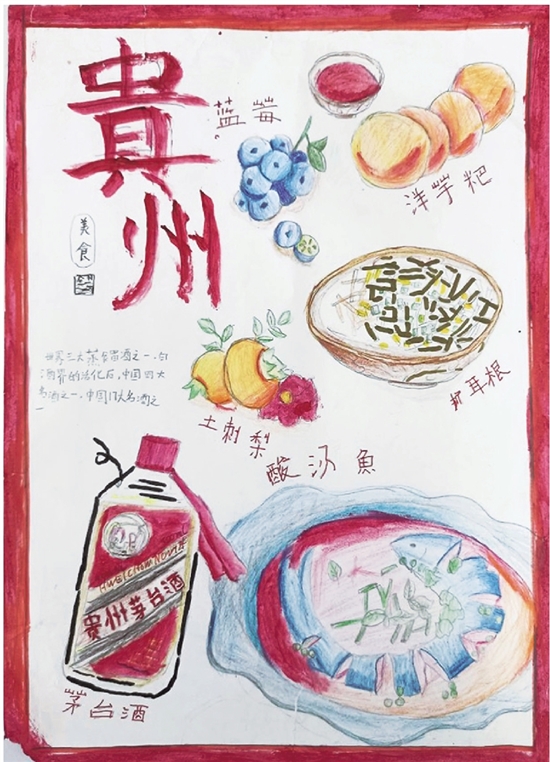 貴
州
美食
蓝莓
洋芋粑
折耳根
世界三大蒸馏酒之一、白
酒界的活化石,中国四大
名酒之一、中国八大名酒之
一
土刺梨
酸汤魚
贵州茅台酒
茅台酒